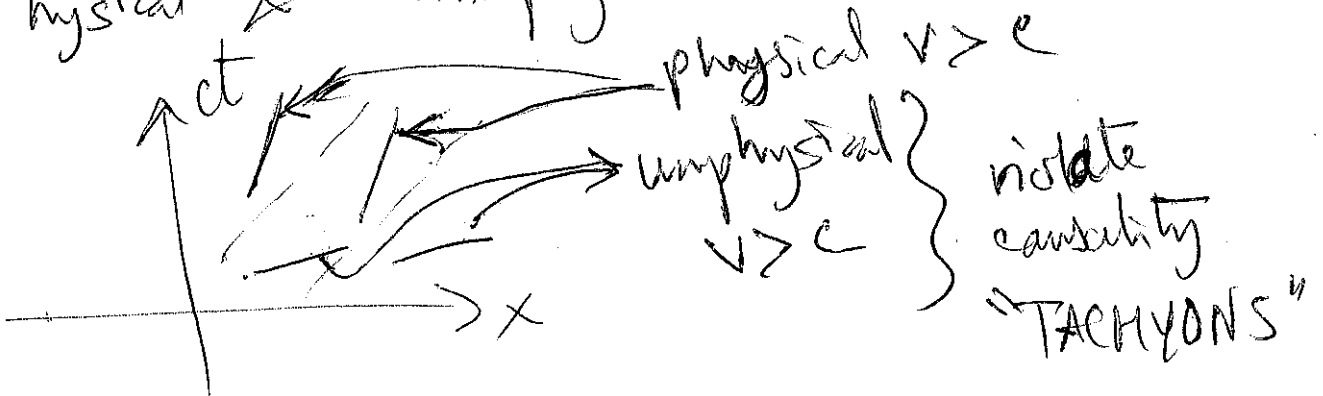 hysical &
ct
physical v > c
unphysical
v > c
violate
causality
"TACHYONS"
x